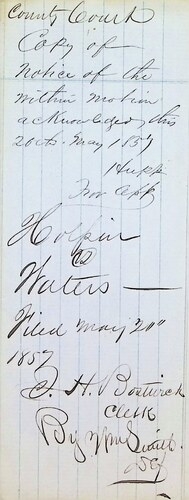 County Court
Copy of
notice of the
within motion
acknowledged, this
20th. May 1857
Hupp
For Applt
Holpin
vs
Waters
Filed May 20"
1857
J. H. Bostwick
Clerk
By Wm Smith